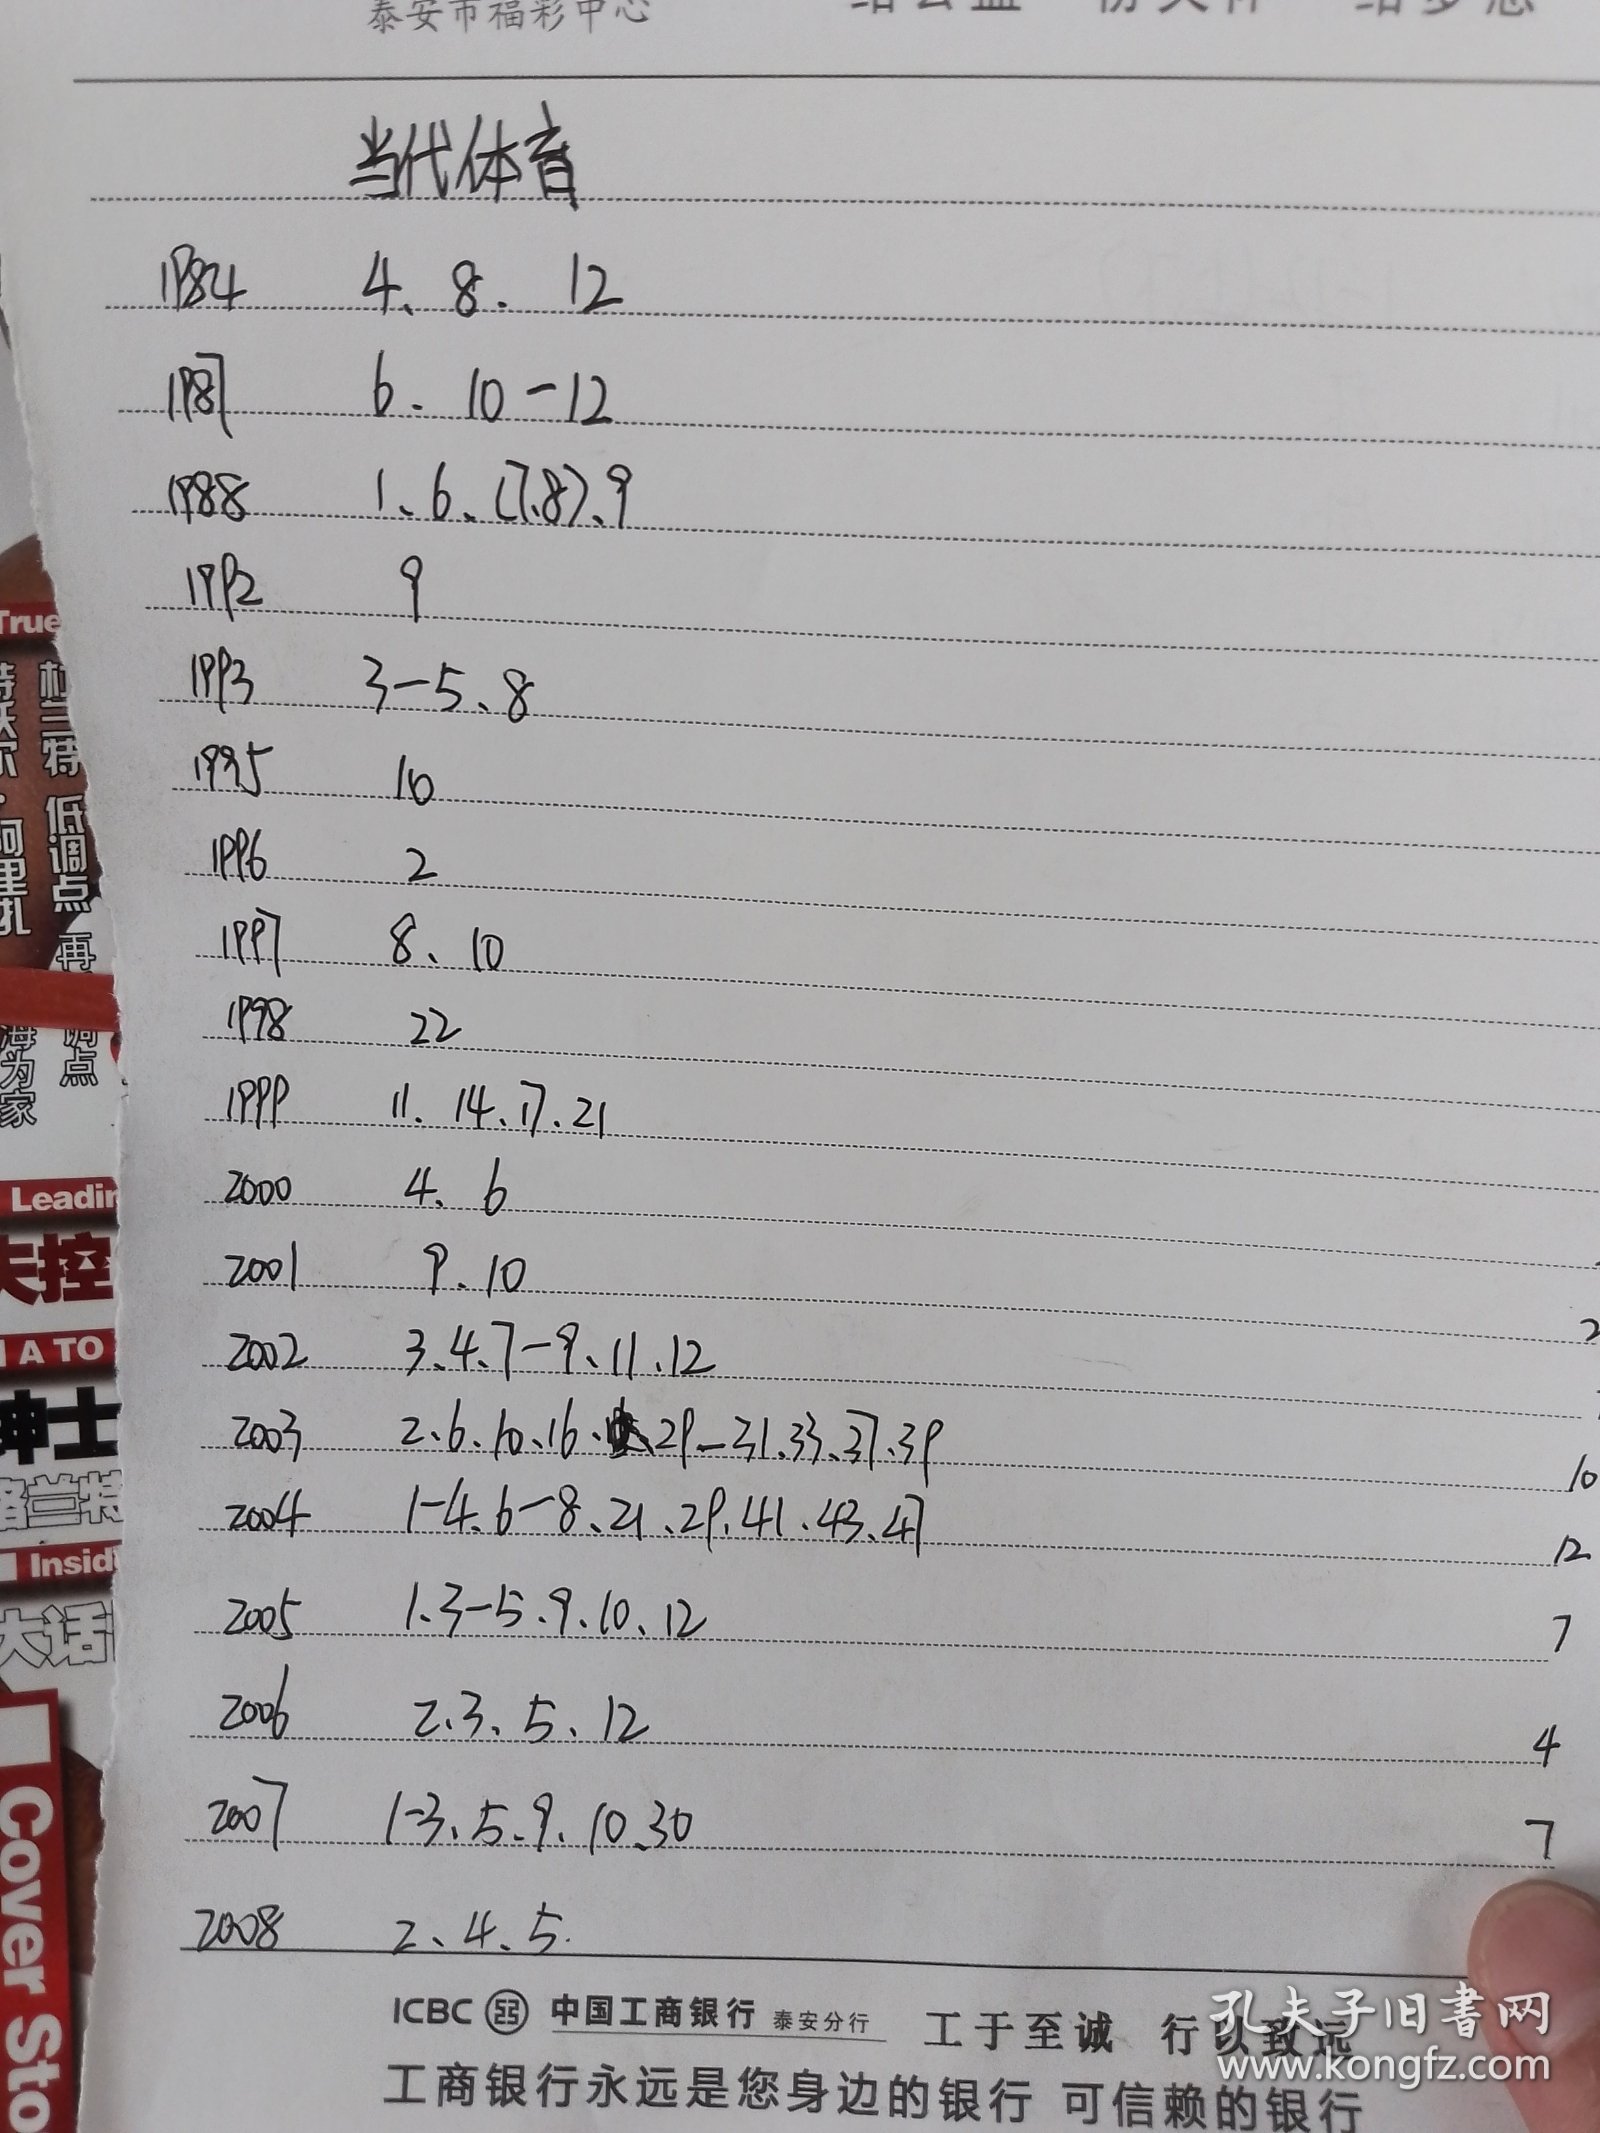 泰安市福彩中心
当代体育
1984 4、8. 12
1987 6. 10-12
1988 1、6、(7.8)、9
1992 9
1993 3-5、8
1995 10
1996 2
1997 8、10
1998 22
1999 11. 14.17.21
2000 4、6
2001 9.10
2002 3、4、7-9、11、12
2003 2、6、10、16、29-31、33、37、39 10
2004 1-4、6-8、21、29、41、43、47 12
2005 1、3-5、9、10、12 7
2006 2、3、5、12 4
2007 1-3、5、9、10、30 7
2008 2、4、5.
ICBC 中国工商银行 泰安分行 工于至诚 行以致远
工商银行永远是您身边的银行 可信赖的银行
True
杜兰特 低调点 再
海为家
Leadin
失控
A TO
绅士
格兰特
Insid
大话
Cover Sto
孔夫子旧书网
www.kongfz.com